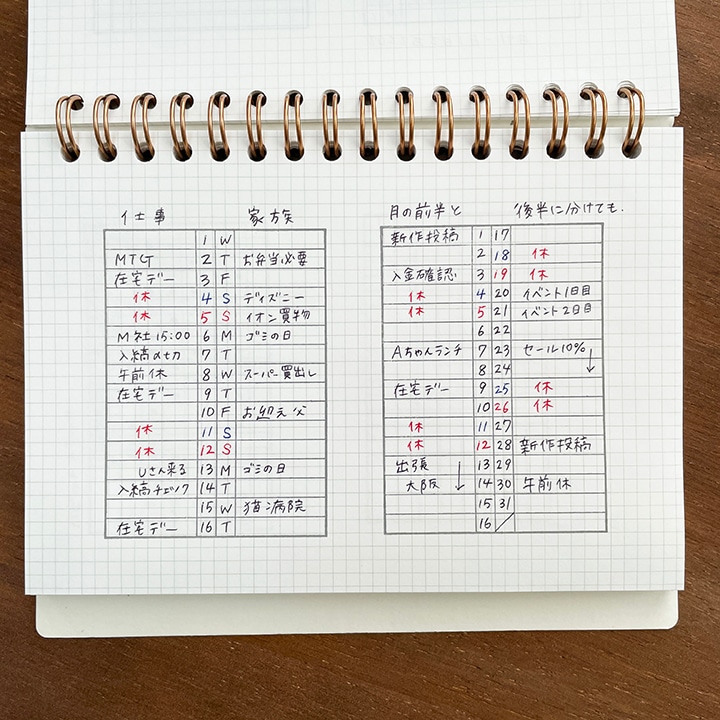 仕事 家族
1 W
MTG 2 T お弁当必要
在宅デー 3 F
休 4 S ディズニー
休 5 S イオン買物
M社 15:00 6 M ゴミの日
入稿〆切 7 T
午前休 8 W スーパー買出し
在宅デー 9 T
10 F お迎え父
休 11 S
休 12 S
Uさん来る 13 M ゴミの日
入稿チェック 14 T
15 W 猫病院
在宅デー 16 T
月の前半と 後半に分けても.
新作投稿 1 17
2 18 休
入金確認 3 19 休
休 4 20 イベント1日目
休 5 21 イベント2日目
6 22
Aちゃんランチ 7 23 セール10%
8 24
在宅デー 9 25 休
10 26 休
休 11 27
休 12 28 新作投稿
出張 13 29
大阪 14 30 午前休
15 31
16